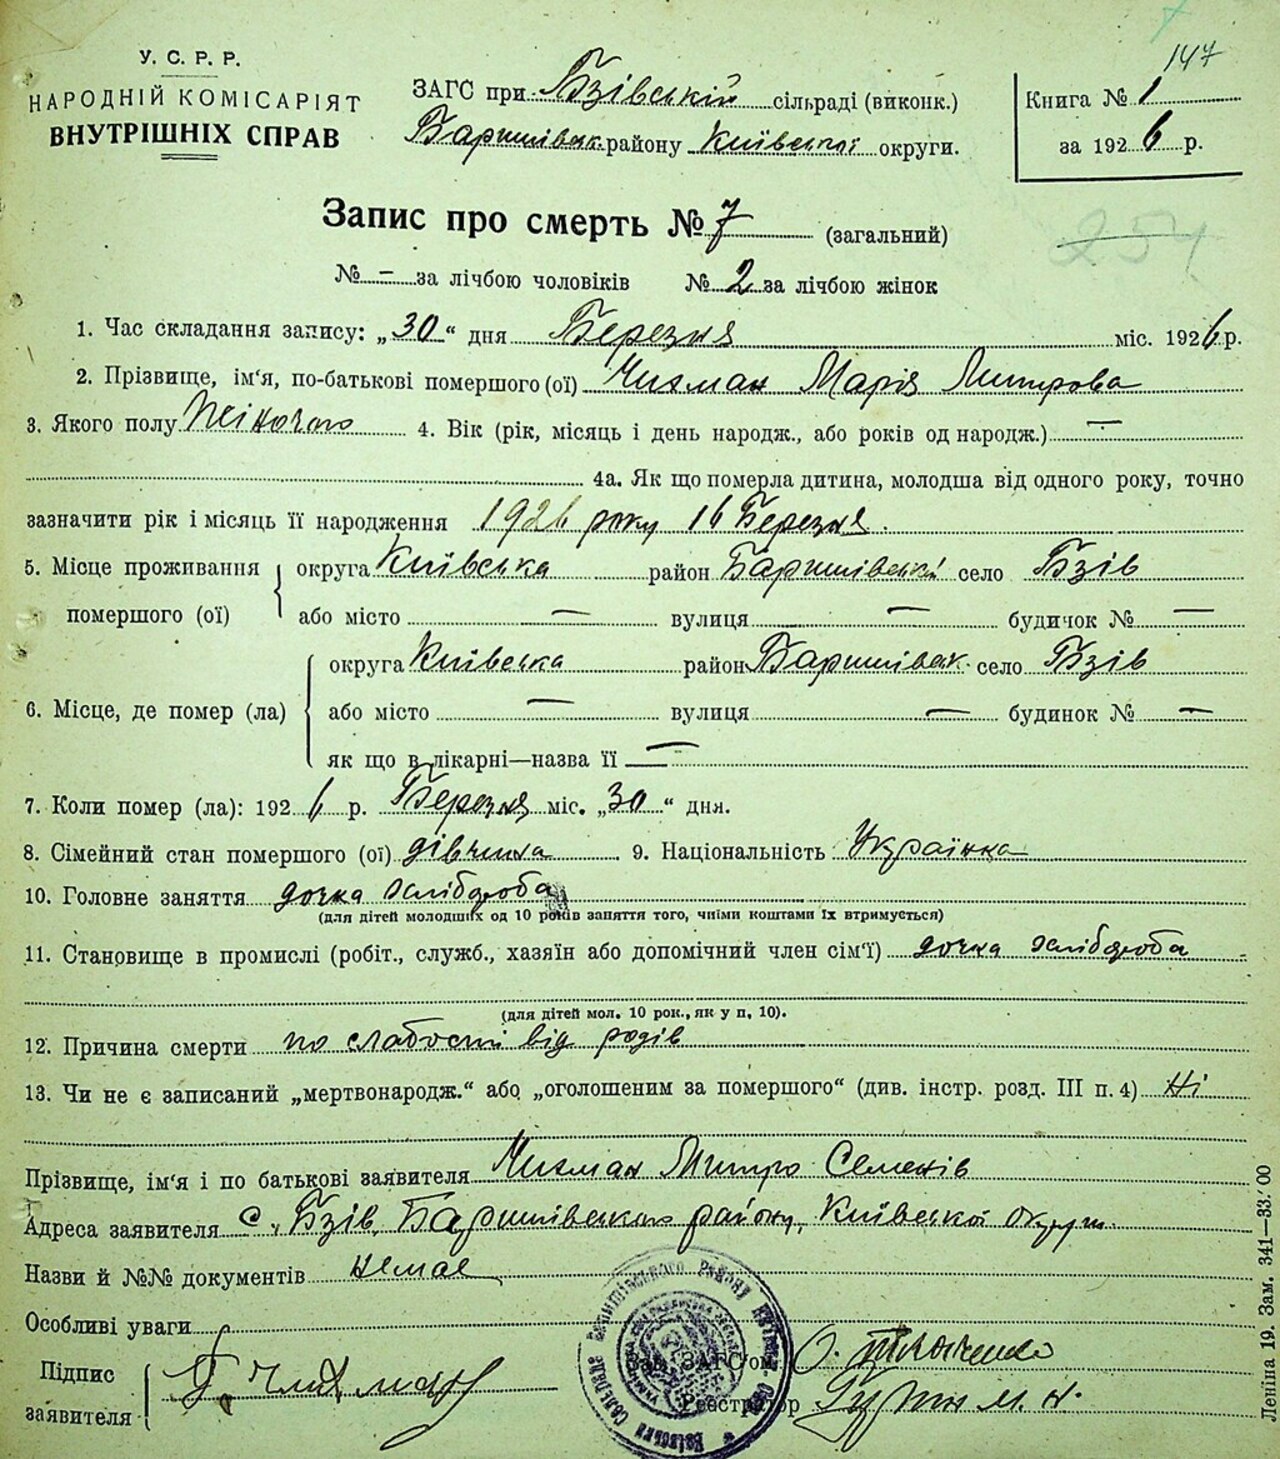 147
У. С. Р. Р.
НАРОДНІЙ КОМІСАРІЯТ
ВНУТРІШНІХ СПРАВ
ЗАГС при Бзівській сільраді (виконк.)
Баришівськ. району Київської округи.
Книга № 1
за 1926 р.
254
Запис про смерть № 7 (загальний)
№ – за лічбою чоловіків № 2 за лічбою жінок
1. Час складання запису: „30“ дня Березня міс. 1926 р.
2. Прізвище, ім‘я, по-батькові помершого (ої) Чихман Марія Митрова
3. Якого полу Жіночого 4. Вік (рік, місяць і день народж., або років од народж.) —
4а. Як що померла дитина, молодша від одного року, точно
зазначити рік і місяць її народження 1926 року 16 Березня.
5. Місце проживання помершого (ої) округа Київська район Баришівський село Бзів
або місто — вулиця — будинок № —
6. Місце, де помер (ла) округа Київська район Баришівськ. село Бзів
або місто — вулиця — будинок № —
як що в лікарні—назва її —
7. Коли помер (ла): 1926 р. Березня міс. „30“ дня.
8. Сімейний стан помершого (ої) дівчина 9. Національність Українка
10. Головне заняття дочка хлібороба
(для дітей молодших од 10 років заняття того, чиїми коштами їх втримується)
11. Становище в промислі (робіт., служб., хазяїн або допомічний член сім‘ї) дочка хлібороба
(для дітей мол. 10 рок., як у п. 10).
12. Причина смерти по слабости від родів
13. Чи не є записаний „мертвонародж.“ або „оголошеним за помершого“ (див. інстр. розд. III п. 4) Ні
Прізвище, ім‘я і по батькові заявителя Чихман Митро Семенів
Адреса заявителя с. Бзів, Баришівського району, Київської округи.
Назви й №№ документів немає
Особливі уваги
Підпис заявителя
Зав. ЗАГС‘ом
Реєстратор
Леніна 19. Зам. 341—33.′00